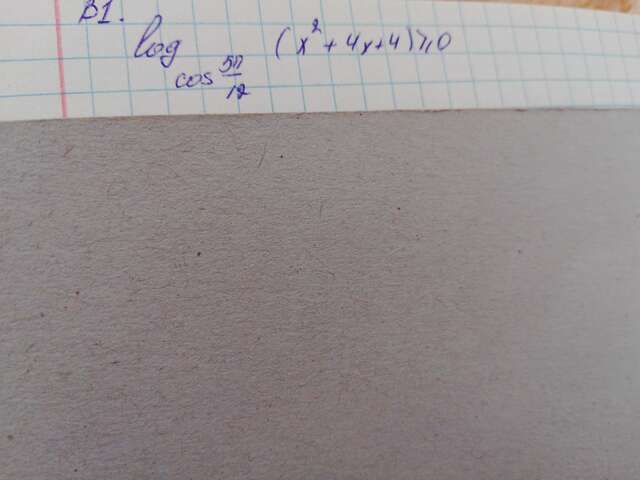 B1.
log cos 5π/12 (x² + 4x + 4) ≥ 0